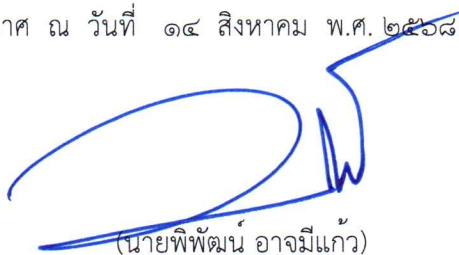 าศ ณ วันที่ ๑๔ สิงหาคม พ.ศ. ๒๕๖๘
(นายพิพัฒน์ อาจมีแก้ว)